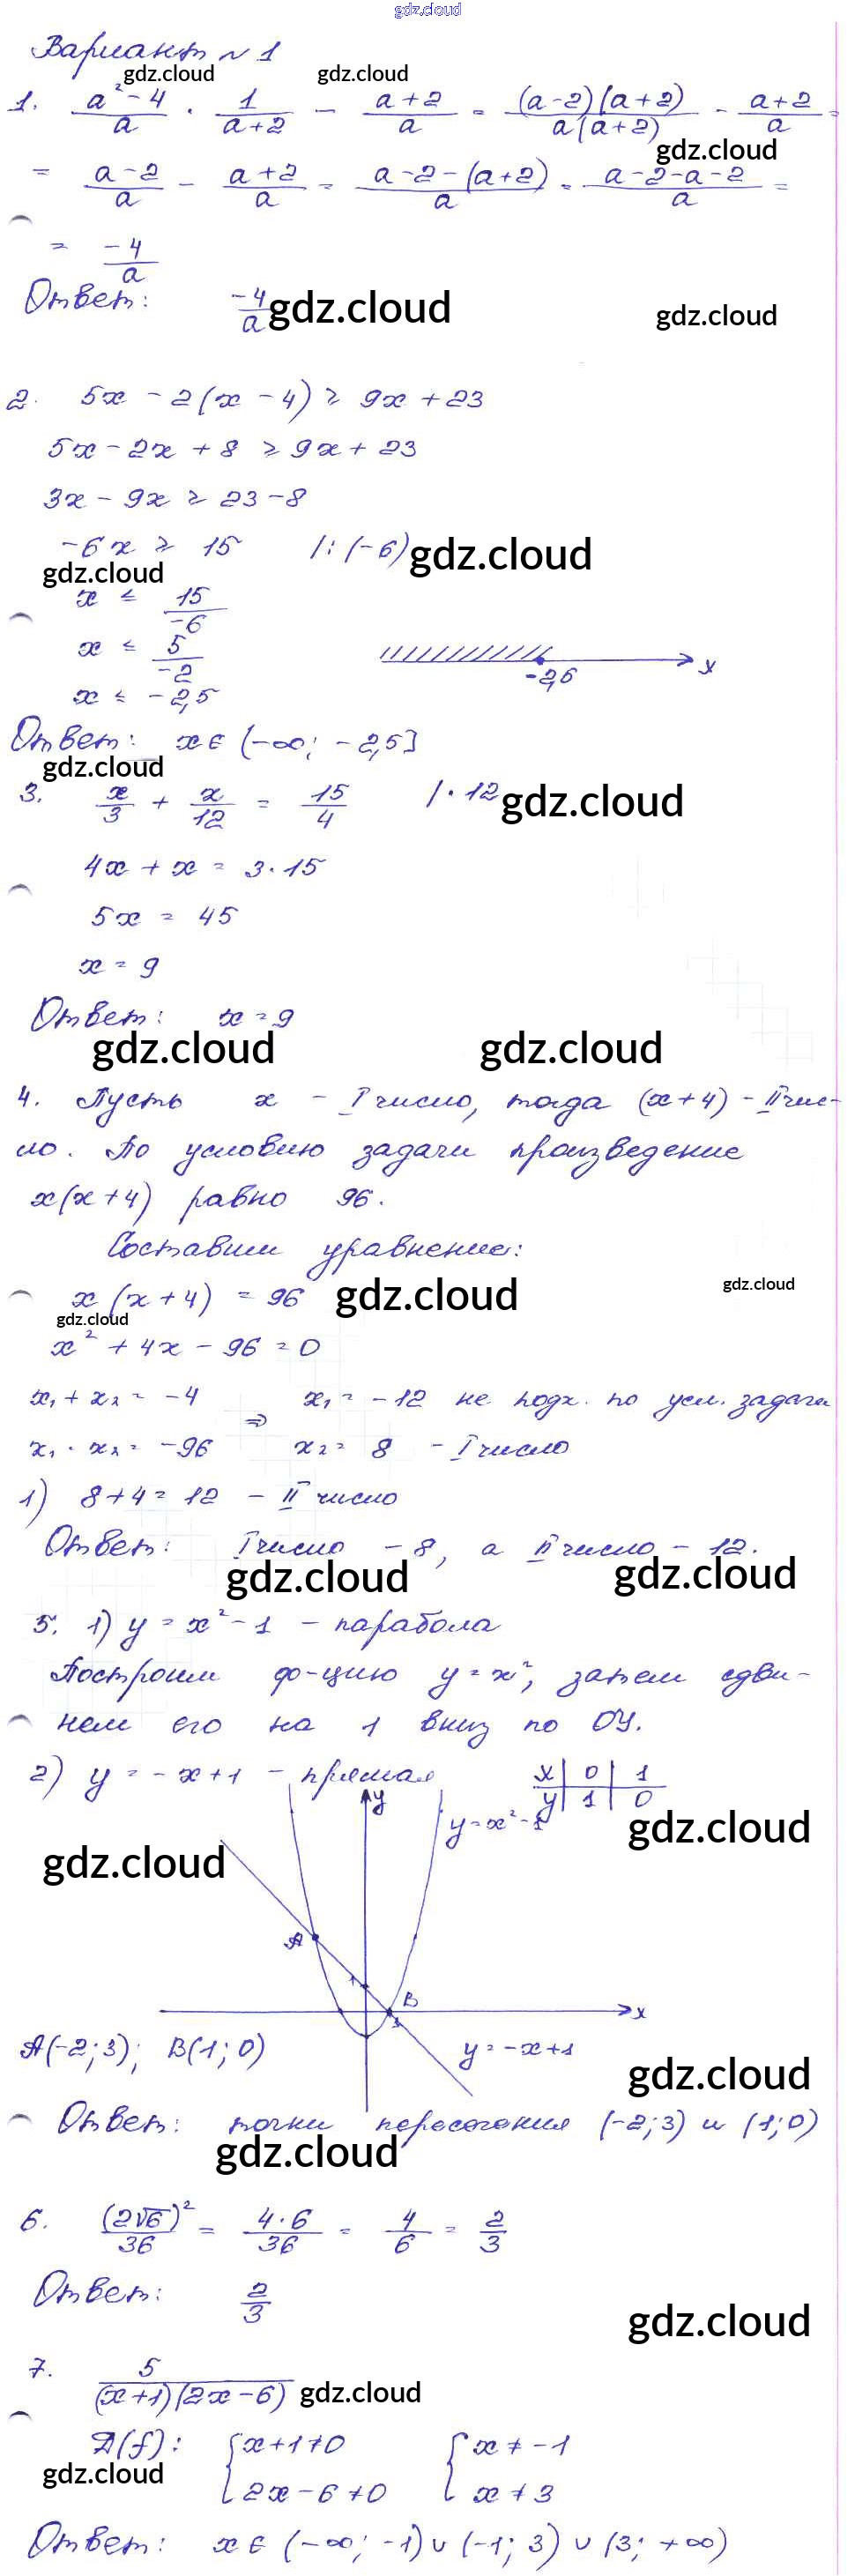 gdz.cloud
Вариант №1
gdz.cloud gdz.cloud
1. (a² - 4)/a · 1/(a+2) - (a+2)/a = (a-2)(a+2)/a(a+2) - (a+2)/a =
gdz.cloud
= (a-2)/a - (a+2)/a = (a-2-(a+2))/a = (a-2-a-2)/a =
= -4/a
Ответ: -4/a
gdz.cloud gdz.cloud
2. 5x - 2(x - 4) ≥ 9x + 23
5x - 2x + 8 ≥ 9x + 23
3x - 9x ≥ 23 - 8
-6x ≥ 15 |:(-6)
gdz.cloud
gdz.cloud
x ≤ 15/-6
x ≤ 5/-2
x ≤ -2,5
-2,5 x
Ответ: x ∈ (-∞; -2,5]
gdz.cloud
3. x/3 + x/12 = 15/4 |·12
gdz.cloud
4x + x = 3·15
5x = 45
x = 9
Ответ: x = 9
gdz.cloud gdz.cloud
4. Пусть x - I число, тогда (x+4) - II чис-
ло. По условию задачи произведение
x(x+4) равно 96.
Составим уравнение:
x(x+4) = 96
gdz.cloud gdz.cloud
gdz.cloud
x² + 4x - 96 = 0
x₁ + x₂ = -4 ⇒ x₁ = -12 не подх. по усл. задачи
x₁ · x₂ = -96 x₂ = 8 - I число
1) 8+4 = 12 - II число
Ответ: I число - 8, а II число - 12.
gdz.cloud gdz.cloud
5. 1) y = x² - 1 - парабола
Построим ф-цию y = x², затем сдви-
нем его на 1 вниз по OY.
2) y = -x + 1 - прямая
x | 0 | 1
y | 1 | 0
y
y = x² - 1
gdz.cloud
gdz.cloud
A
1
B
x
1
A(-2; 3); B(1; 0)
y = -x + 1
gdz.cloud
Ответ: точки пересечения (-2; 3) и (1; 0)
gdz.cloud
6. (2√6)²/36 = 4·6/36 = 4/6 = 2/3
Ответ: 2/3
gdz.cloud
7. 5/(x+1)(2x-6)
gdz.cloud
D(f): { x+1 ≠ 0 { x ≠ -1
gdz.cloud
{ 2x - 6 ≠ 0 { x ≠ 3
Ответ: x ∈ (-∞; -1) ∪ (-1; 3) ∪ (3; +∞)